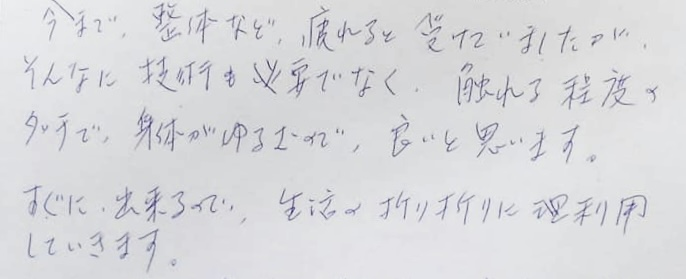 今まで、整体など、疲れると受けていましたが、
そんなに技術も必要でなく、触れる程度の
タッチで、身体がゆるむので、良いと思います。
すぐに、出来るので、生活の折り折りに利用
していきます。